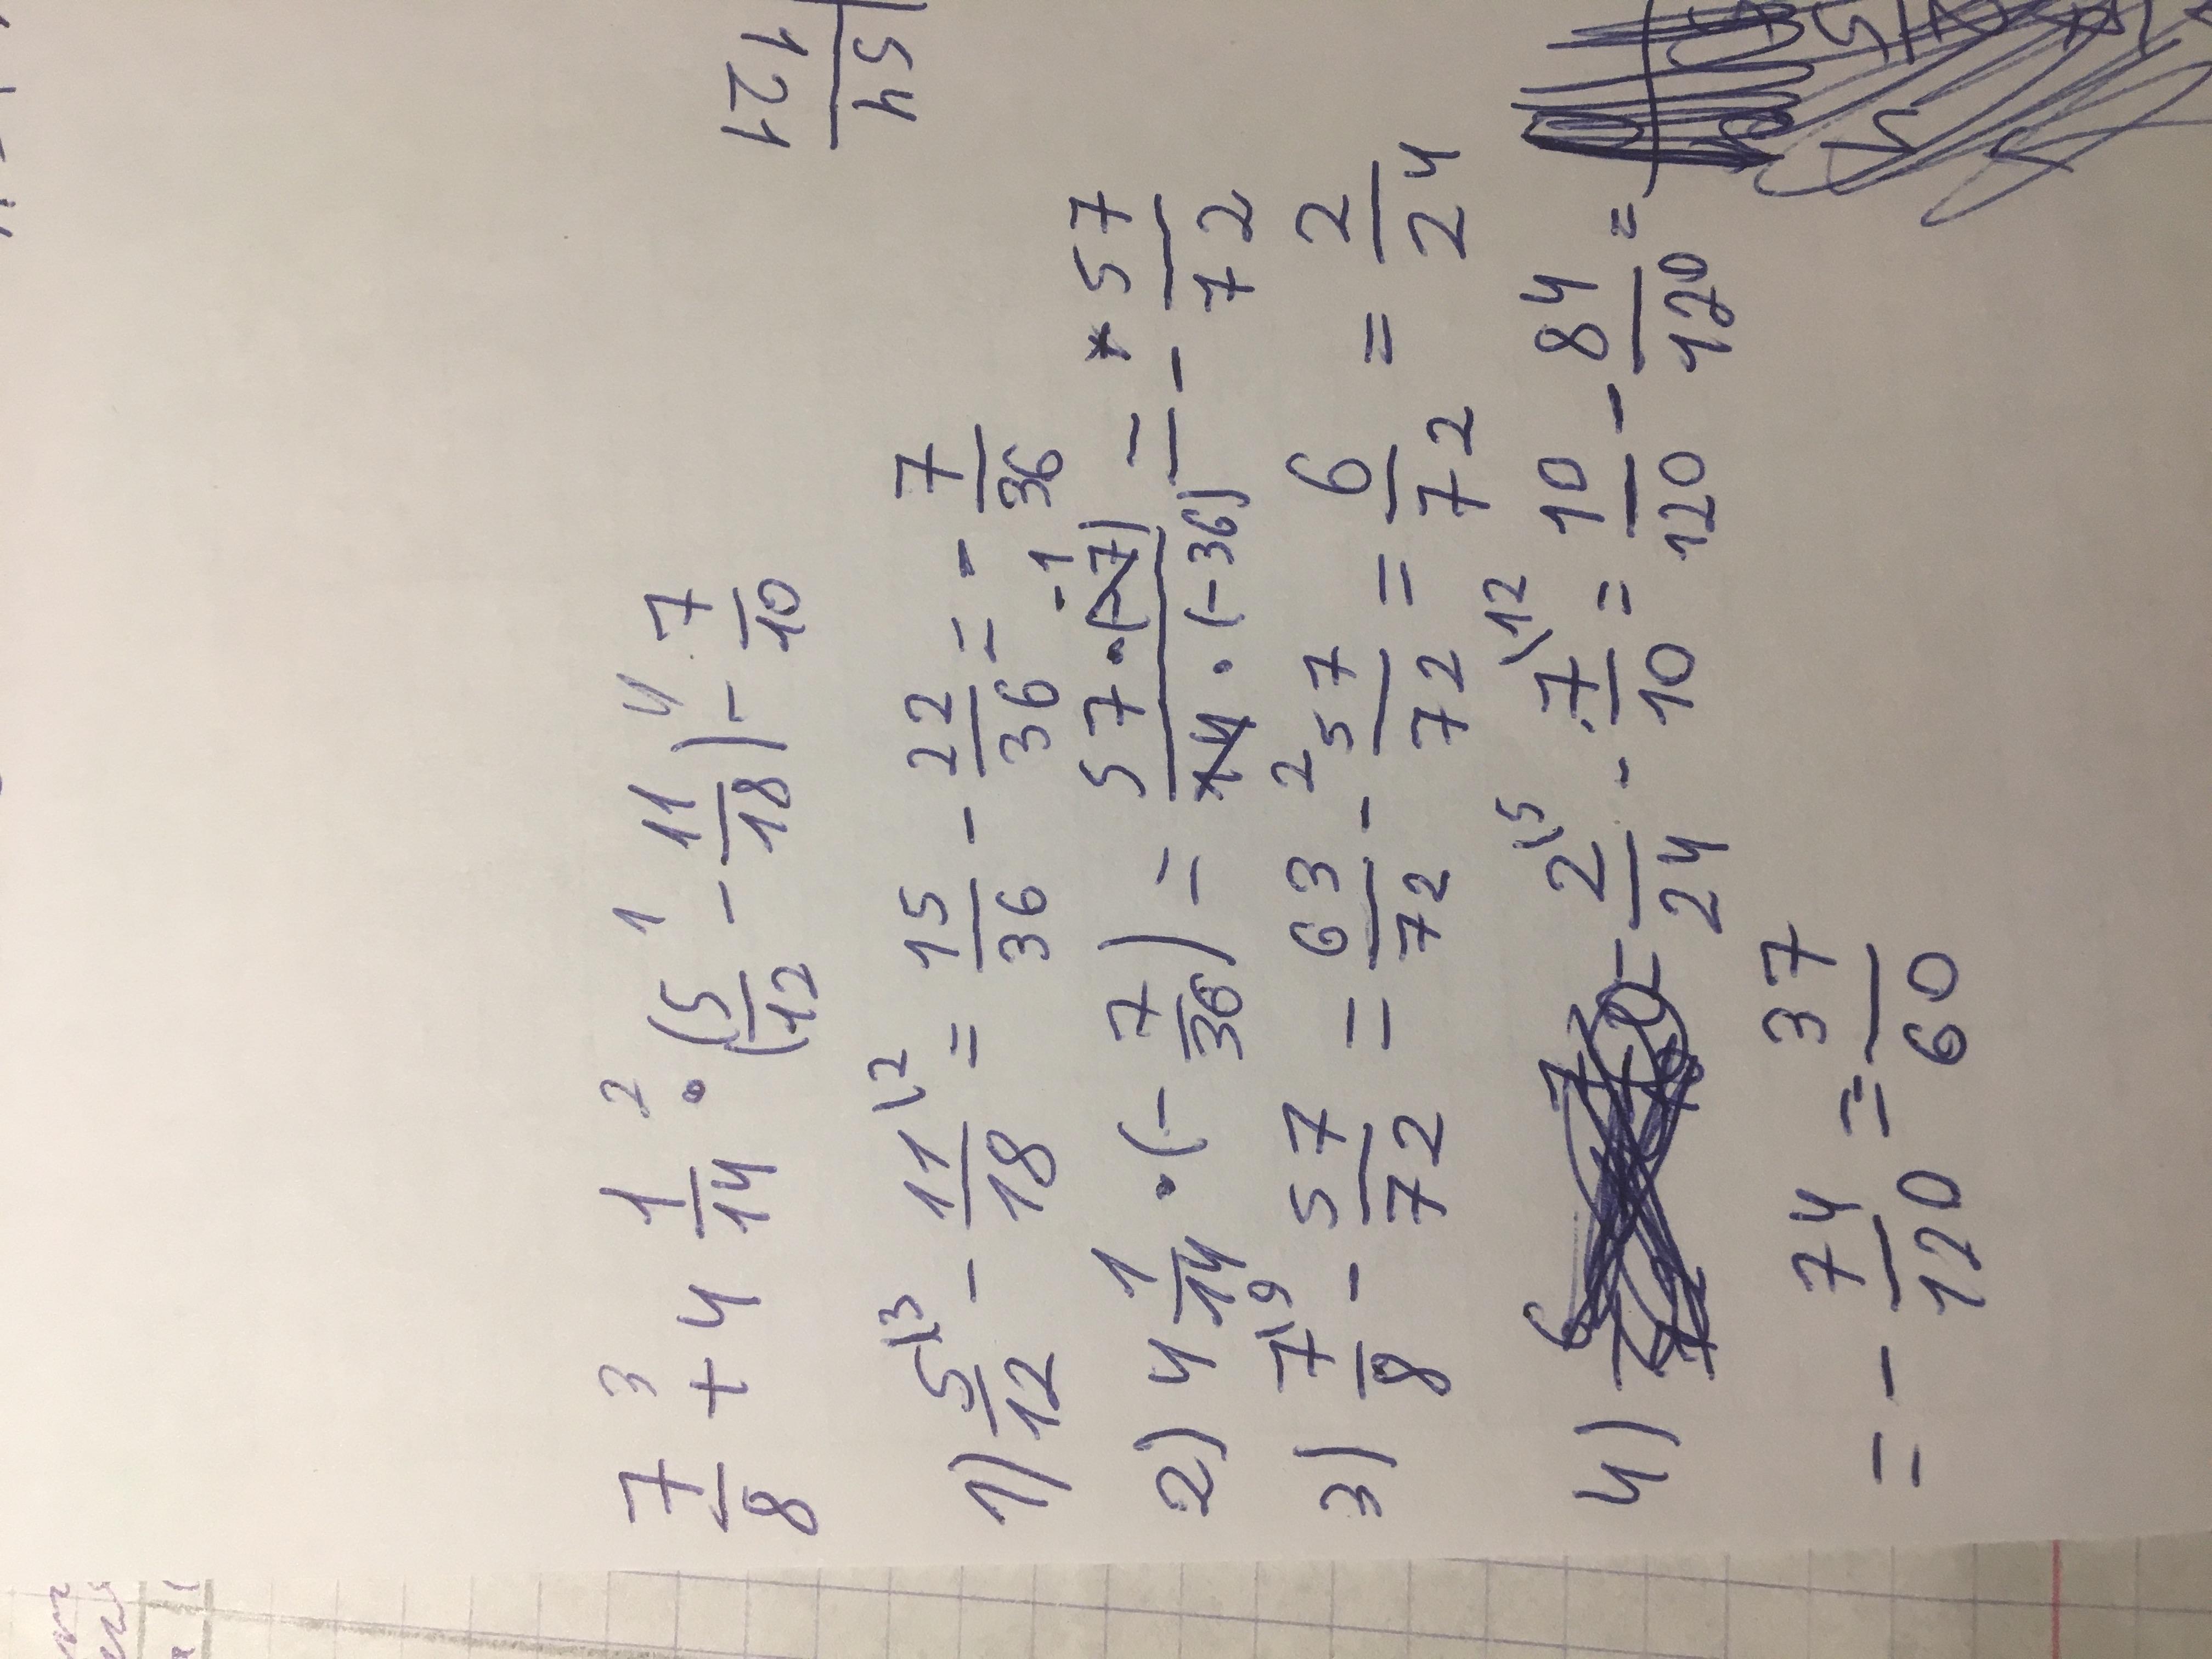 3 2 1 4
7/8 + 4 1/14 · (5/12 - 11/18) - 7/10
1) 5/12 \3 - 11/18 \2 = 15/36 - 22/36 = - 7/36
2) 4 1/14 · (- 7/36) = 57 · (-7) -1 / 14 · (-36) = - 57/72
3) 7/8 \9 - 57/72 = 63/72 - 57/72 = 6/72 = 2/24
4) 2/24 \5 - 7/10 \12 = 10/120 - 84/120 =
= - 74/120 = 37/60
121/54